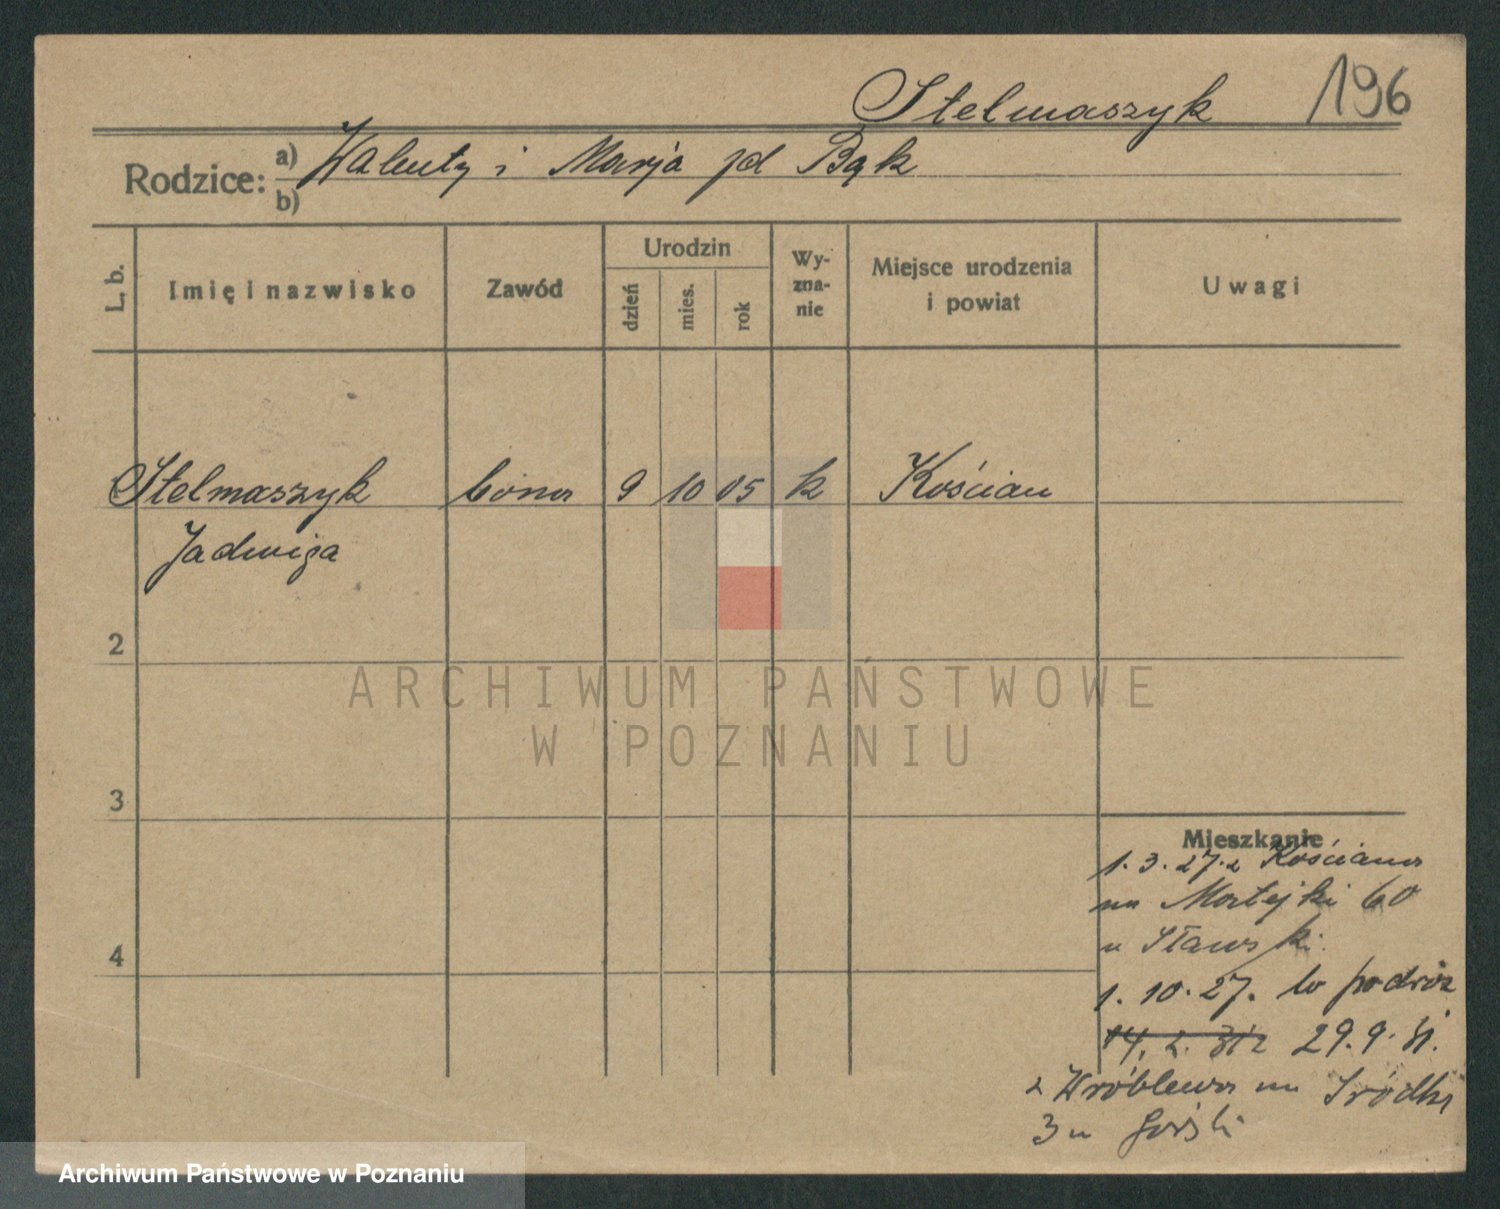 Stelmaszyk 196
Rodzice: a) Walenty i Marja zd Bąk
b)
L. b. Imię i nazwisko Zawód Urodzin dzień mies. rok Wyznanie Miejsce urodzenia i powiat Uwagi
Stelmaszyk bona 9 10 05 k Kościan
Jadwiga
2
3
4
Mieszkanie
1. 3. 27. z Kościana
na Matejki 60
u Sławski
1. 10. 27. w podróż
14. 2. 31 z 29. 9. 31.
z Wróblewa na Śródki
3 u Górski
ARCHIWUM PAŃSTWOWE
W POZNANIU
Archiwum Państwowe w Poznaniu